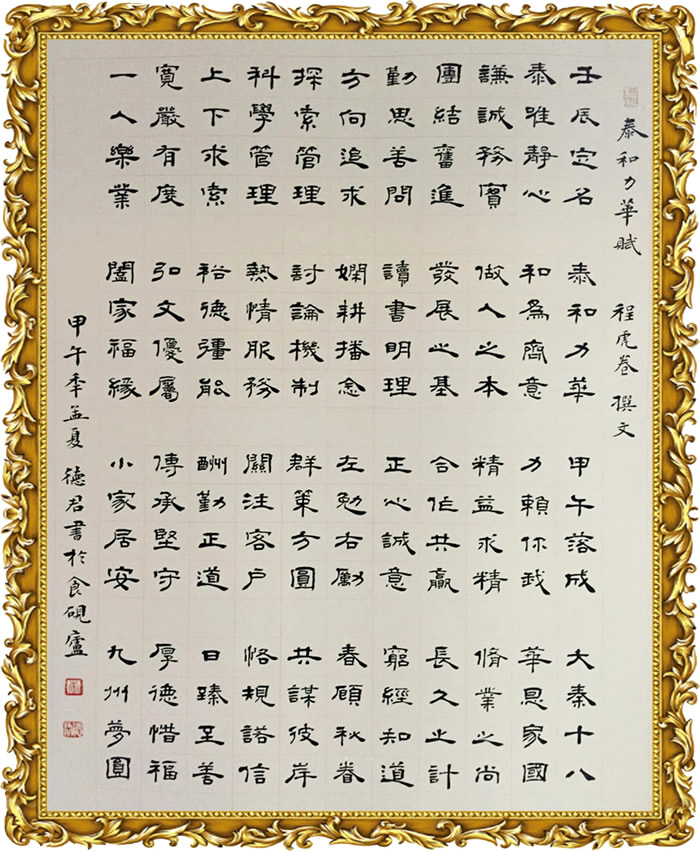 泰和力華賦　程虎卷　撰文
壬辰定名　泰和力華　甲午落成　大秦十八
泰唯靜心　和為齊意　力賴你我　華恩家國
謙誠務實　做人之本　精益求精　脩業之尚
團結奮進　發展之基　合作共贏　長久之計
勤思善問　讀書明理　正心誠意　窮經知道
方向追求　嫻耕播念　左勉右勵　春顧秋眷
探索管理　討論機制　群策方圓　共謀彼岸
科學管理　熱情服務　關注客戶　恪規諾信
上下求索　裕德彊能　酬勤正道　日臻至善
寬嚴有度　弘文優屬　傳承堅守　厚德惜福
一人樂業　闔家福緣　小家居安　九州夢圓
甲午年孟夏　德君書於食硯廬